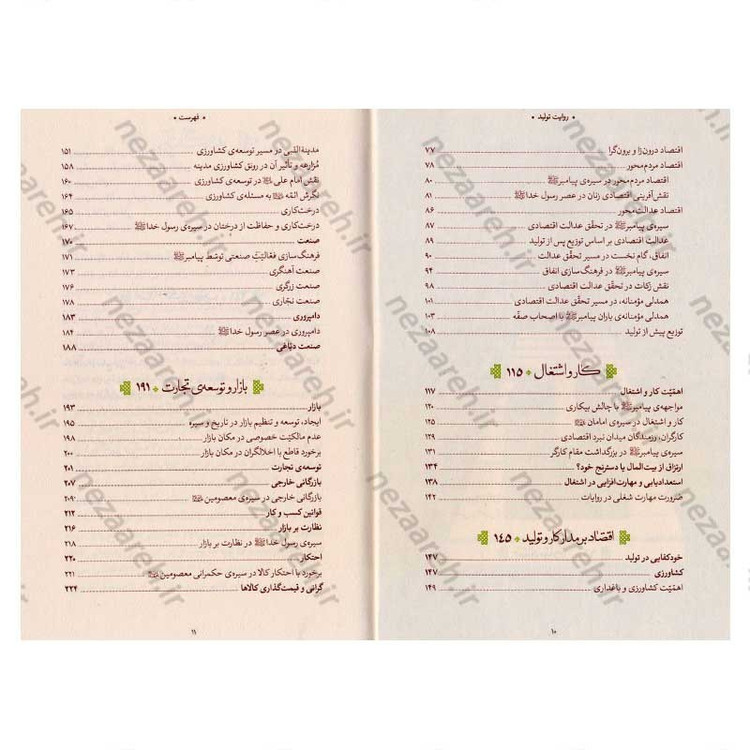 • روایت تولید •
اقتصاد درون‌زا و برون‌گرا ۷۷
اقتصاد مردم‌محور ۷۸
اقتصاد مردم‌محور در سیره‌ی پیامبرﷺ ۸۰
نقش‌آفرینی اقتصادی زنان در عصر رسول خداﷺ ۸۱
اقتصاد عدالت‌محور ۸۶
سیره‌ی پیامبرﷺ در تحقّق عدالت اقتصادی ۸۷
عدالت اقتصادی بر اساس توزیع پس از تولید ۸۹
انفاق، گام نخست در مسیر تحقّق عدالت ۹۰
سیره‌ی پیامبرﷺ در فرهنگ‌سازی انفاق ۹۴
نقش زکات در تحقّق عدالت اقتصادی ۹۸
همدلی مؤمنانه، در مسیر تحقّق عدالت اقتصادی ۱۰۱
همدلی مؤمنانه‌ی یاران پیامبرﷺ با اصحاب صفّه ۱۰۳
توزیع پیش از تولید ۱۰۸
کار و اشتغال • ۱۱۵
اهمّیّت کار و اشتغال ۱۱۷
مواجهه‌ی پیامبرﷺ با چالش بیکاری ۱۲۰
کار و اشتغال در سیره‌ی امامان ۱۲۵
کارگران، رزمندگان میدان نبرد اقتصادی ۱۲۹
سیره‌ی پیامبرﷺ در بزرگداشت مقام کارگر ۱۳۱
ارتزاق از بیت‌المال یا دسترنج خود؟ ۱۳۴
استعدادیابی و مهارت‌افزایی در اشتغال ۱۳۸
ضرورت مهارت شغلی در روایات ۱۴۲
اقتصاد بر مدار کار و تولید • ۱۴۵
خودکفایی در تولید ۱۴۷
کشاورزی ۱۴۷
اهمّیّت کشاورزی و باغداری ۱۴۹
۱۰
• فهرست •
مدینة‌النّبی در مسیر توسعه‌ی کشاورزی ۱۵۱
مُزارعه و تأثیر آن در رونق کشاورزی مدینه ۱۵۸
نقش امام علی در توسعه‌ی کشاورزی ۱۶۰
نگرش ائمّه به مسئله‌ی کشاورزی ۱۶۴
درخت‌کاری ۱۶۵
درخت‌کاری و حفاظت از درختان در سیره‌ی رسول خداﷺ ۱۶۷
صنعت ۱۷۰
فرهنگ‌سازی فعّالیّت صنعتی توسّط پیامبرﷺ ۱۷۱
صنعت آهنگری ۱۷۳
صنعت زرگری ۱۷۶
صنعت نجّاری ۱۷۸
دامپروری ۱۸۳
دامپروری در عصر رسول خداﷺ ۱۸۴
صنعت دبّاغی ۱۸۸
بازار و توسعه‌ی تجارت • ۱۹۱
بازار ۱۹۳
ایجاد، توسعه و تنظیم بازار در تاریخ و سیره ۱۹۵
عدم مالکیّت خصوصی در مکان بازار ۱۹۸
برخورد قاطع با اخلالگران در مکان بازار ۲۰۰
توسعه‌ی تجارت ۲۰۱
بازرگانی خارجی ۲۰۷
بازرگانی خارجی در سیره‌ی معصومین ۲۰۹
قوانین کسب و کار ۲۱۲
نظارت بر بازار ۲۱۶
سیره‌ی رسول خداﷺ در نظارت بر بازار ۲۱۸
احتکار ۲۲۰
برخورد با احتکار کالا در سیره‌ی حکمرانی معصومین ۲۲۱
گرانی و قیمت‌گذاری کالاها ۲۲۴
۱۱
nezaareh.ir